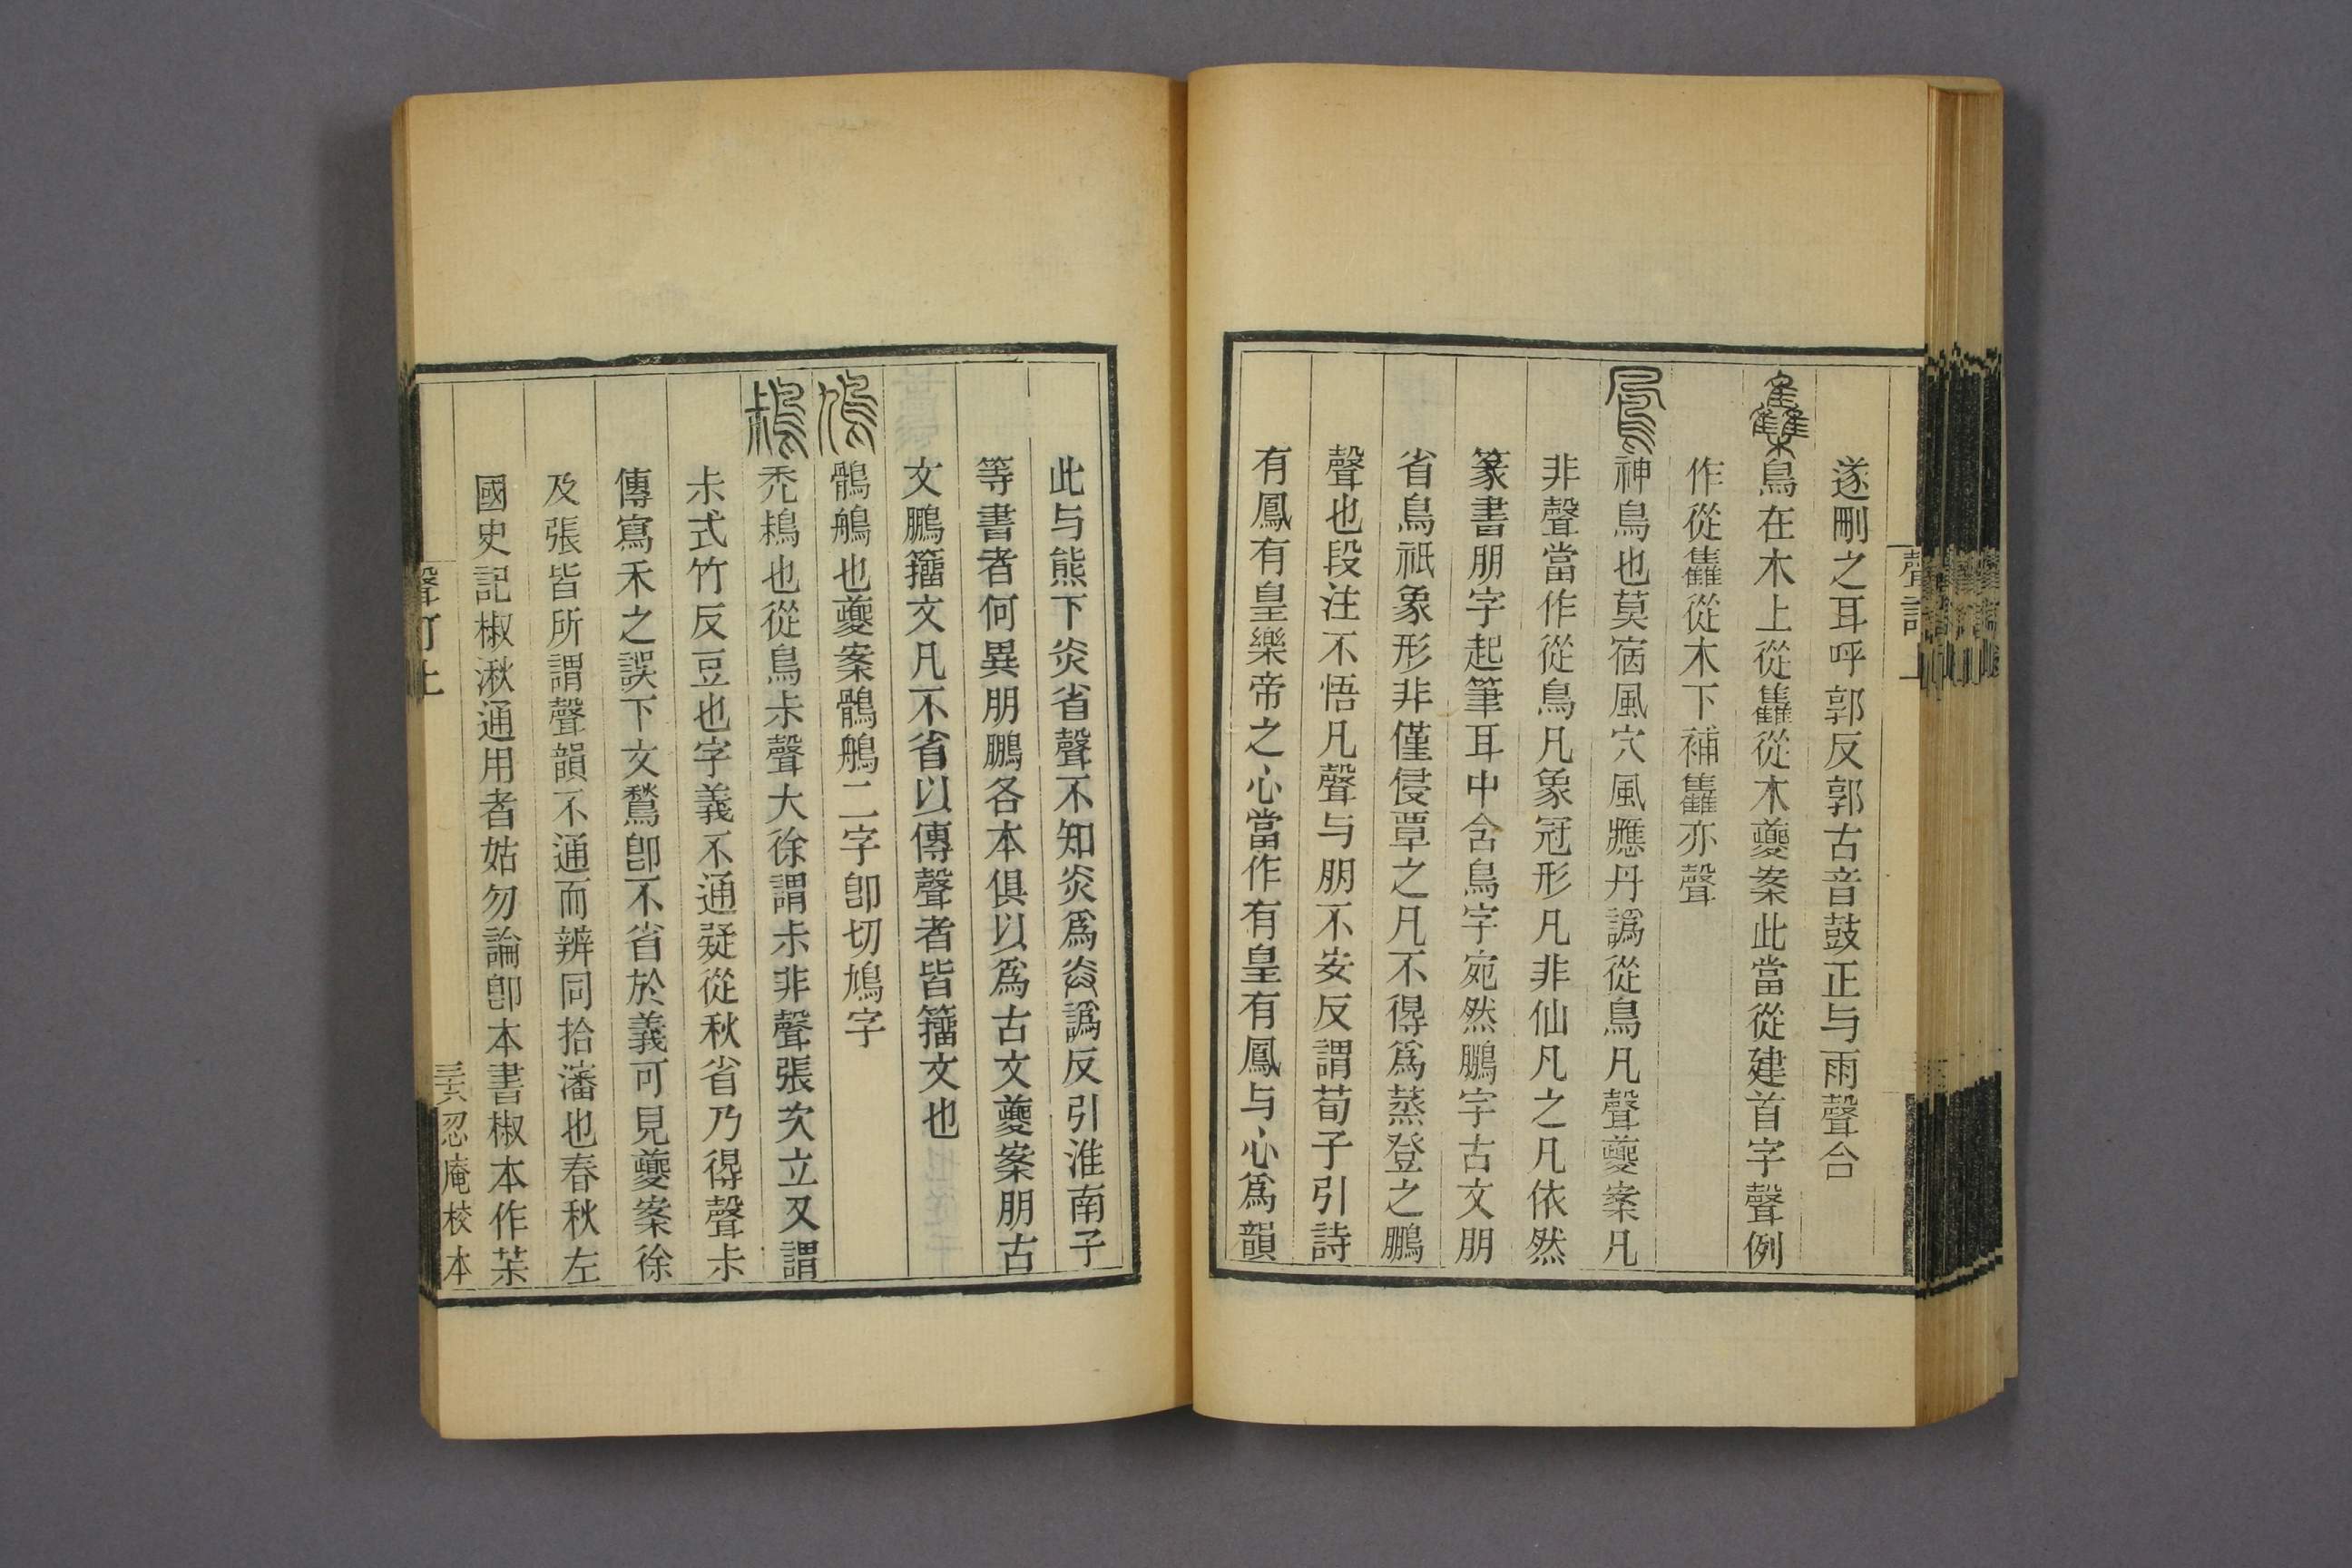 聲訂上
遂刪之耳呼郭反郭古音鼓正与雨聲合
雧鳥在木上從雥從木夔案此當從建首字聲例
作從雥從木下補雥亦聲
鳳神鳥也莫宿風穴風應丹譌從鳥凡聲夔案凡
非聲當作從鳥凡象冠形凡非仙凡之凡依然
篆書朋字起筆耳中含鳥字宛然鵬字古文朋
省鳥祇象形非僅侵覃之凡不得爲蒸登之鵬
聲也段注不悟凡聲与朋不安反謂荀子引詩
有鳳有皇樂帝之心當作有皇有鳳与心爲韻
此与熊下炎省聲不知炎爲焱譌反引淮南子
等書者何異朋鵬各本俱以爲古文夔案朋古
文鵬籒文凡不省以傳聲者皆籒文也
鳩鶻鵃也夔案鶻鵃二字卽切鳩字
禿鵨也從鳥尗聲大徐謂尗非聲張次立又謂
尗式竹反豆也字義不通疑從秋省乃得聲尗
傳寫禾之誤下文鶖卽不省於義可見夔案徐
及張皆所謂聲韻不通而辨同拾瀋也春秋左
國史記椒湫通用者姑勿論卽本書椒本作茮
聲訂上
三六
忍庵校本